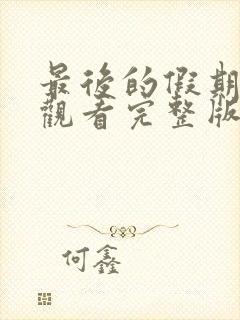 最後的假期
觀看完整版
何鑫